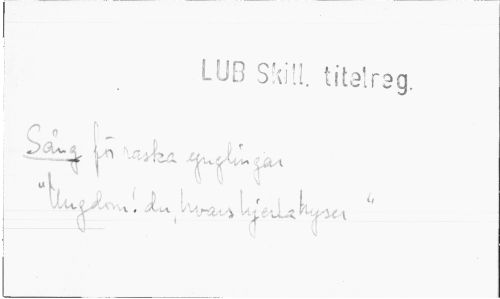 LUB Skill. titelreg.
Sång för raska ynglingar
"Ungdom! du, hvars hjerta hyser "